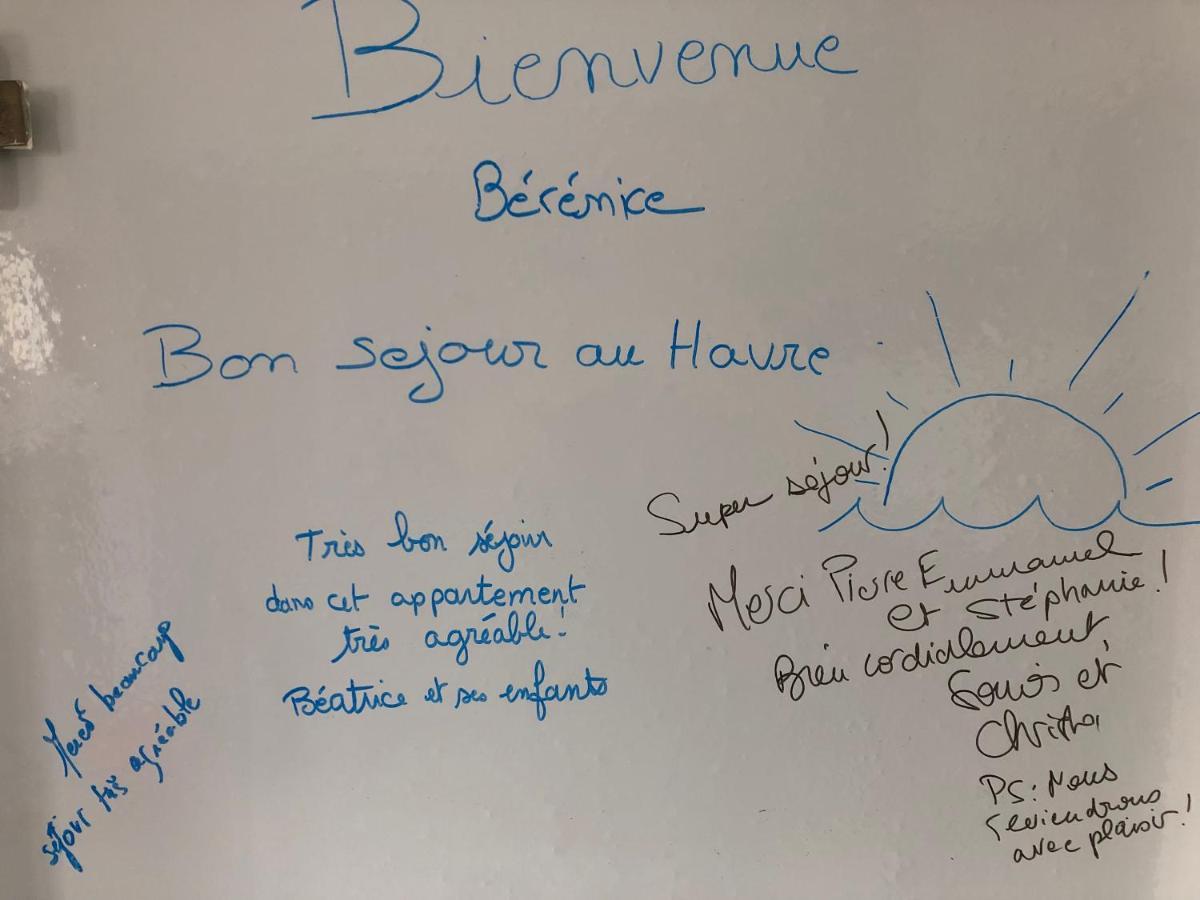 Bienvenue
Bérénice
Bon sejour au Havre
Super séjour!
Merci Pierre Emmanuel
et Stéphanie!
Bien cordialement,
et
PS: Nous
reviendrons
avec plaisir!
Très bon séjour
dans cet appartement
très agréable!
Béatrice et ses enfants
Merci beaucoup
séjour très agréable